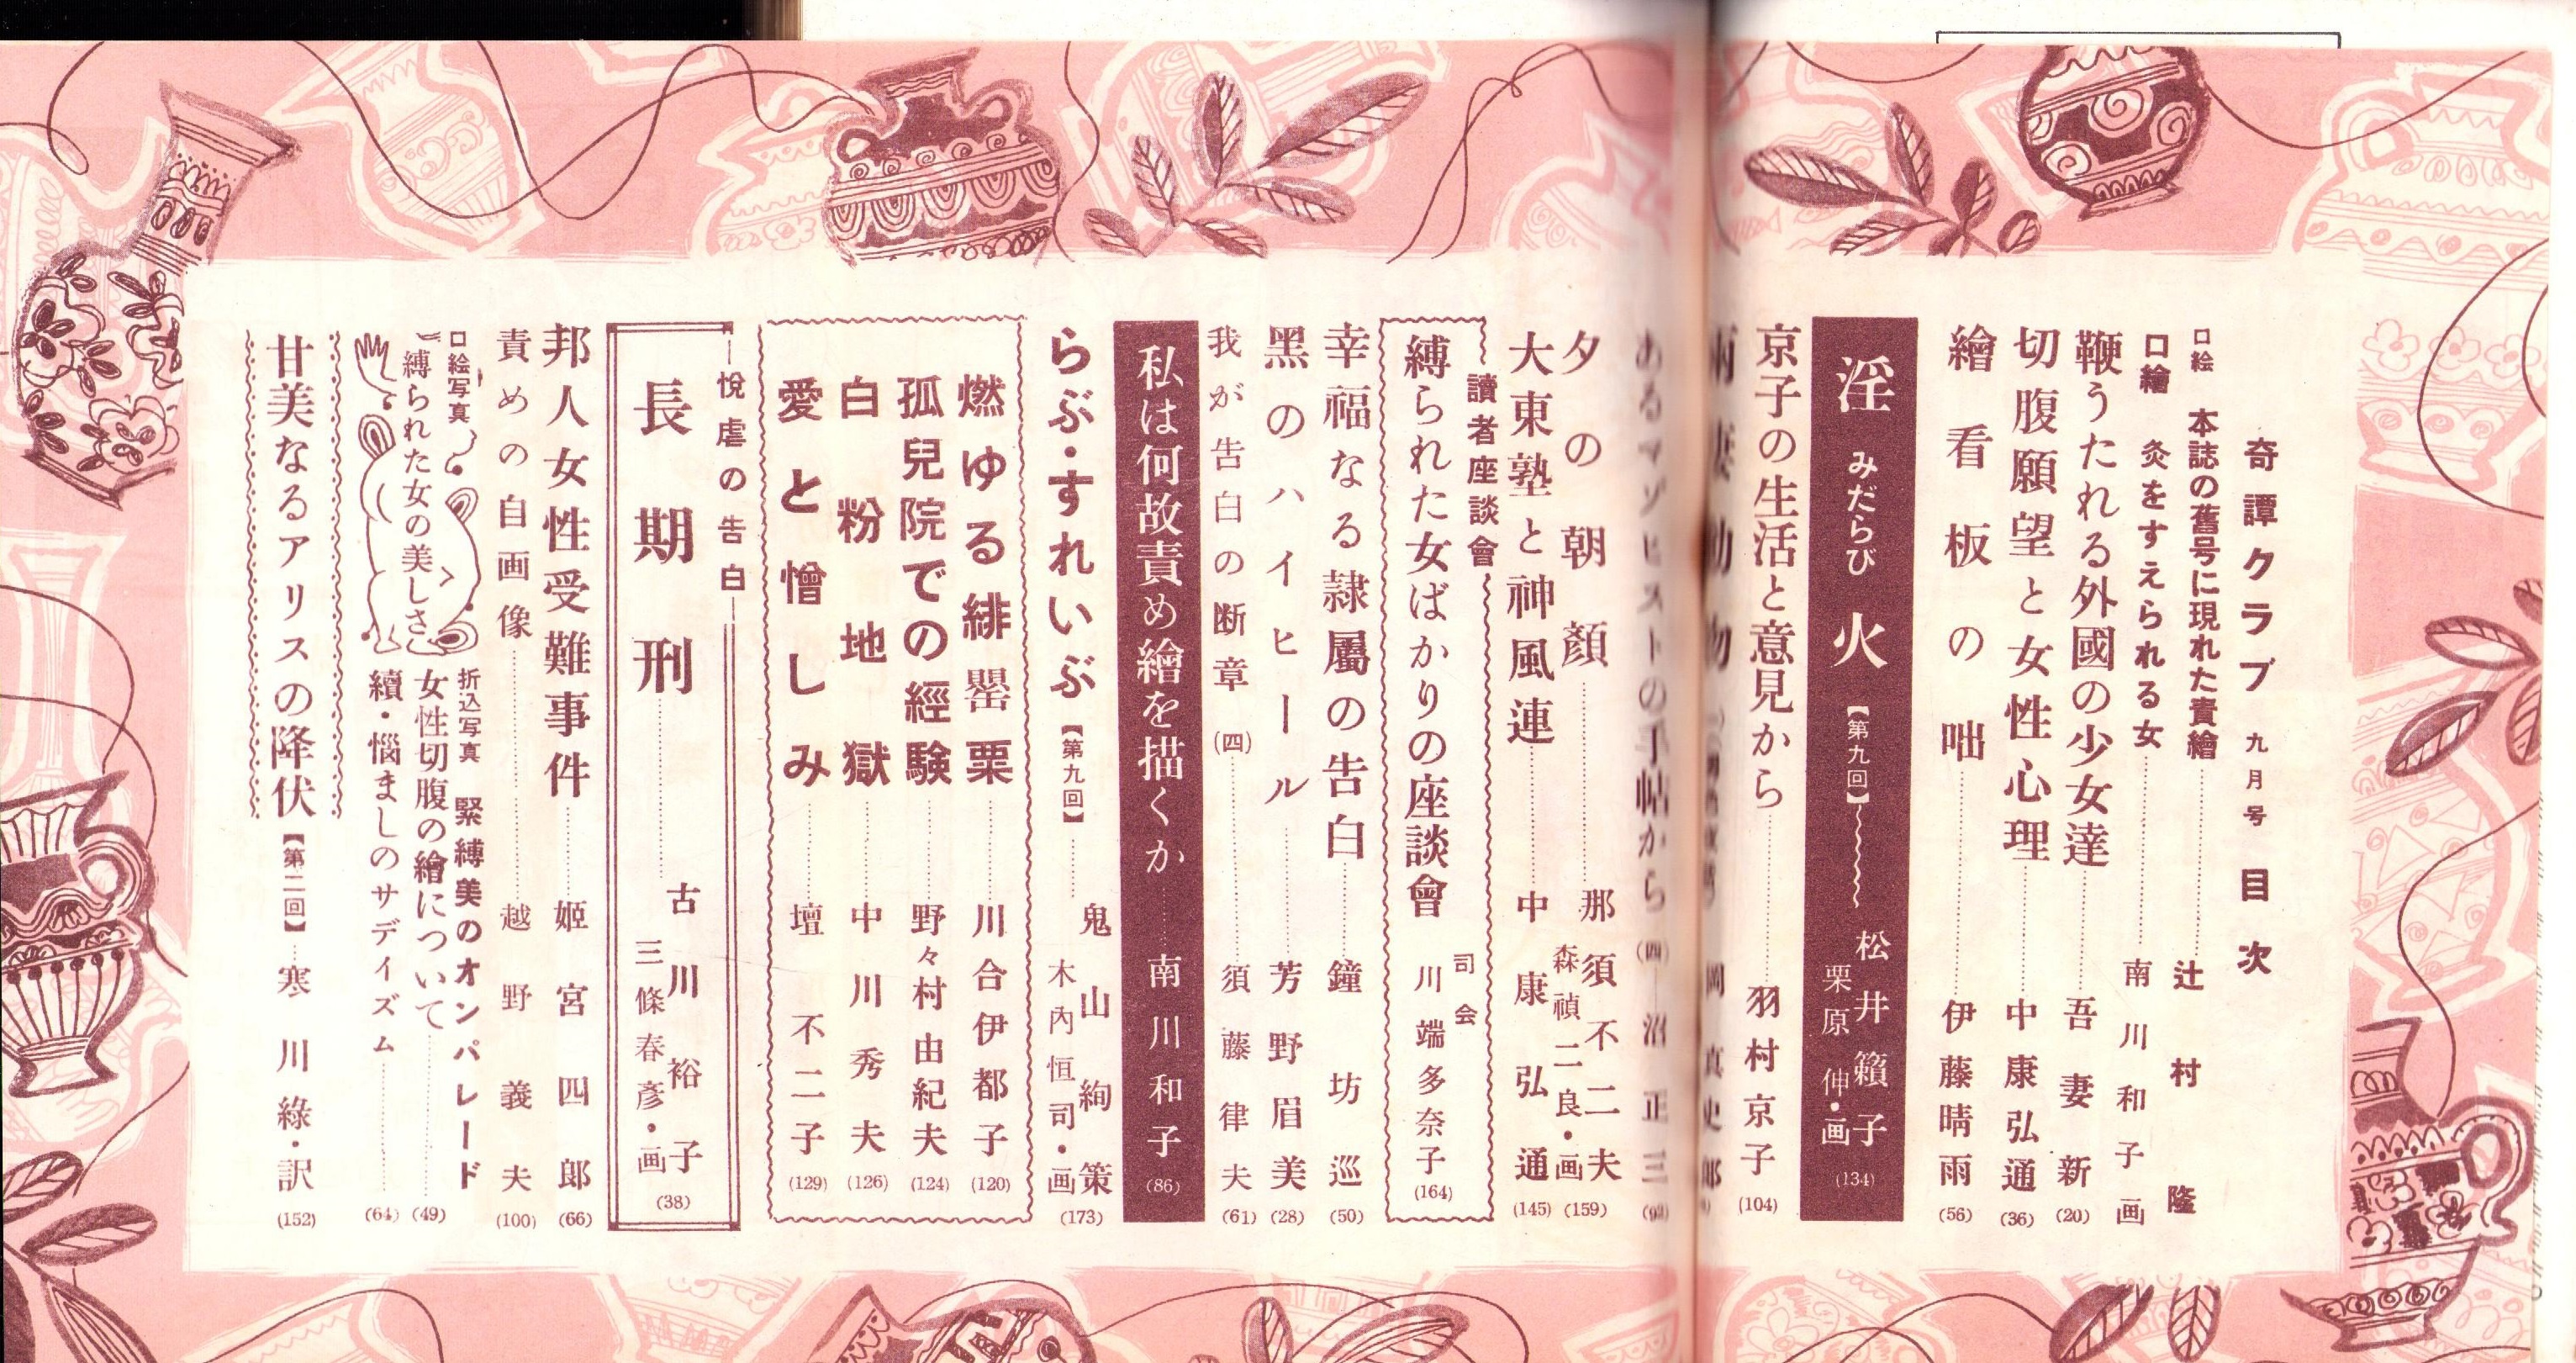 奇譚クラブ 九月号 目次
口絵 本誌の舊号に現れた責繪 辻村隆
口繪 灸をすえられる女 南川和子画
鞭うたれる外國の少女達 吾妻新 (20)
切腹願望と女性心理 中康弘通 (36)
繪看板の咄 伊藤晴雨 (56)
淫火 みだらび 【第九回】 松井籟子 栗原伸・画 (134)
京子の生活と意見から 羽村京子 (104)
岡真史郎
あるマゾヒストの手帖から (四) 沼正三
夕の朝顔 那須不二夫 森禎二良・画 (159)
大東塾と神風連 中康弘通 (145)
讀者座談會
縛られた女ばかりの座談會 司会 川端多奈子 (164)
幸福なる隷屬の告白 鐘坊巡 (50)
黑のハイヒール 芳野眉美 (28)
我が告白の断章 (四) 須藤律夫 (61)
私は何故責め繪を描くか 南川和子 (86)
らぶ・すれいぶ 【第九回】 鬼山絢策 木內恒司・画 (173)
燃ゆる緋罌栗 川合伊都子 (120)
孤兒院での經驗 野々村由紀夫 (124)
白粉地獄 中川秀夫 (126)
愛と憎しみ 壇不二子 (129)
悅虐の告白
長期刑 古川裕子 三條春彥・画 (38)
邦人女性受難事件 姬宮四郎 (66)
責めの自画像 越野義夫 (100)
口絵写真 縛られた女の美しさ
折込写真 緊縛美のオンパレード
女性切腹の繪について (49)
續・惱ましのサディズム (64)
甘美なるアリスの降伏 【第二回】 寒川綠・訳 (152)